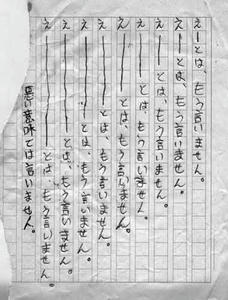 えーとは、もう言いません。
えーとは、もう言いません。
えーとは、もう言いません。
えーとは、もう言いません。
えーとは、もう言いません。
えーとは、もう言いません。
えーとは、もう言いません。
えーとは、もう言いません。
えーとは、もう言いません。
悪い意味では言いません。